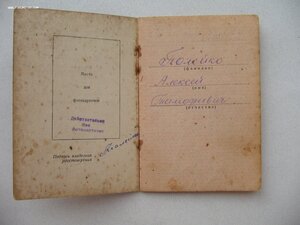 Место
для
фотокарточки
Действительно
без
фотокарточки
Подпись владельца
удостоверения
(фамилия)
Алексей
(имя)
Тимофеевич
(отчество)